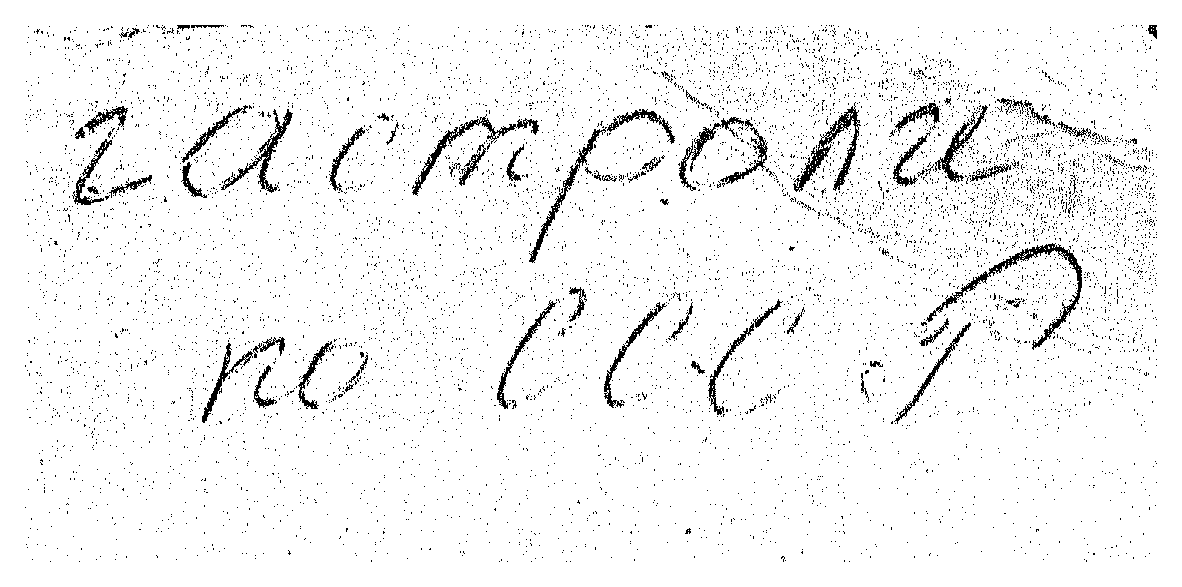 гастроли
по СССР